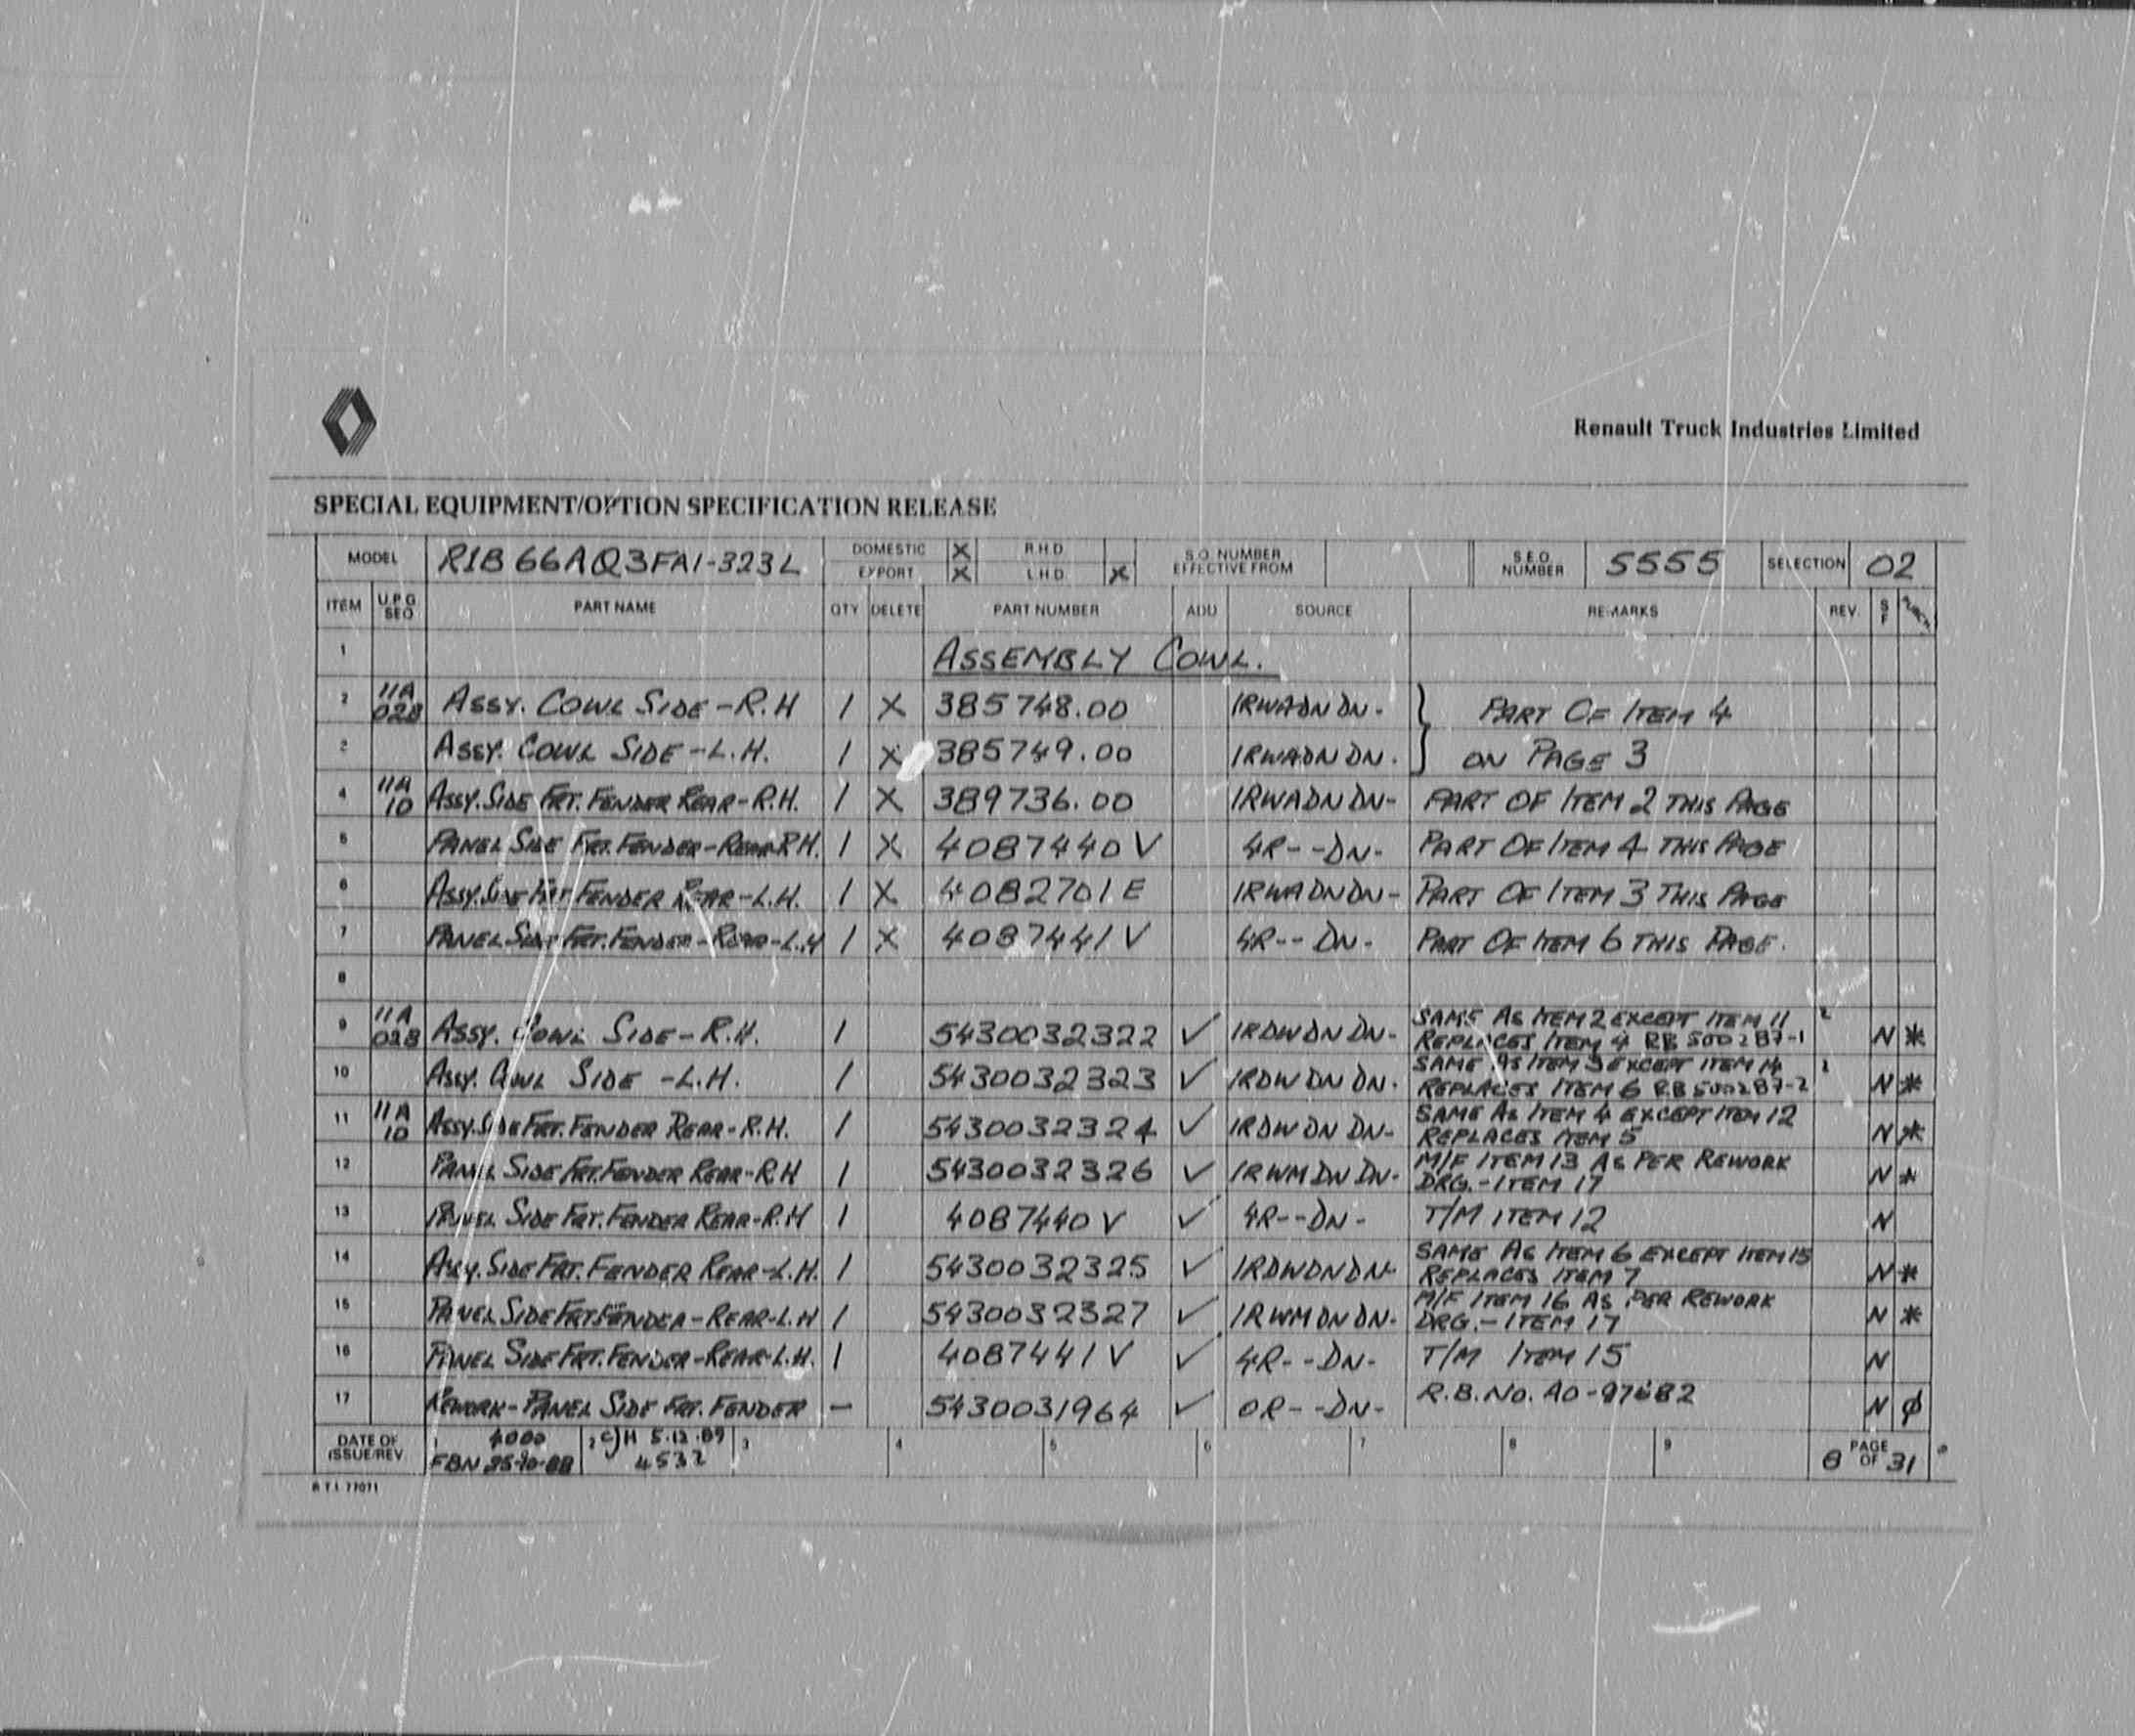 Renault Truck Industries Limited
SPECIAL EQUIPMENT/OPTION SPECIFICATION RELEASE
MODEL R1B66AQ3FA1-323L DOMESTIC X R.H.D. S.O. NUMBER EFFECTIVE FROM S.E.O. NUMBER 5555 SELECTION 02
EXPORT X L.H.D. X
ITEM U.P.G SEQ PART NAME QTY DELETE PART NUMBER ADD SOURCE REMARKS REV. S F
1 ASSEMBLY COWL.
2 11A 028 ASSY. COWL SIDE-R.H 1 X 385748.00 1RWADNDN- } PART OF ITEM 4
2 ASSY. COWL SIDE-L.H. 1 X 385749.00 1RWADNDN. } ON PAGE 3
4 11A 10 ASSY. SIDE FRT. FENDER REAR-R.H. 1 X 389736.00 1RWADNDN- PART OF ITEM 2 THIS PAGE
5 PANEL SIDE FRT. FENDER-REAR R.H. 1 X 4087440V 4R--DN- PART OF ITEM 4 THIS PAGE
6 ASSY. SIDE FRT FENDER REAR-L.H. 1 X 4082701E 1RWADNDN- PART OF ITEM 3 THIS PAGE
7 PANEL SIDE FRT. FENDER-REAR-L.H 1 X 4087441V 4R--DN- PART OF ITEM 6 THIS PAGE.
8
9 11A 028 ASSY. COWL SIDE-R.H. 1 5430032322 ✓ 1RDWDNDN- SAME AS ITEM 2 EXCEPT ITEM 11 REPLACES ITEM 4 RB 500287-1 2 N *
10 ASSY. COWL SIDE-L.H. 1 5430032323 ✓ 1RDWDNDN. SAME AS ITEM 3 EXCEPT ITEM 14 REPLACES ITEM 6 RB 500287-2 2 N *
11 11A 10 ASSY. SIDE FRT. FENDER REAR-R.H. 1 5430032324 ✓ 1RDWDNDN- SAME AS ITEM 4 EXCEPT ITEM 12 REPLACES ITEM 5 N *
12 PANEL SIDE FRT. FENDER REAR-R.H 1 5430032326 ✓ 1RWMDNDN- M/F ITEM 13 AS PER REWORK DRG.-ITEM 17 N *
13 PANEL SIDE FRT. FENDER REAR-R.H 1 4087440V ✓ 4R--DN- T/M ITEM 12 N
14 ASSY. SIDE FRT. FENDER REAR-L.H. 1 5430032325 ✓ 1RDWDNDN- SAME AS ITEM 6 EXCEPT ITEM 15 REPLACES ITEM 7 N *
15 PANEL SIDE FRT. FENDER-REAR-L.H 1 5430032327 ✓ 1RWMDNDN- M/F ITEM 16 AS PER REWORK DRG.-ITEM 17 N *
16 PANEL SIDE FRT. FENDER-REAR-L.H. 1 4087441V ✓ 4R--DN- T/M ITEM 15 N
17 REWORK-PANEL SIDE FRT. FENDER - 5430031964 ✓ 0R--DN- R.B. NO. A0-97682 N ϕ
DATE OF ISSUE/REV. 1 4000 FBN 25-10-88 2 CJH 5.12.89 4532 3 4 5 6 7 8 9 8 PAGE OF 31
R.T.I. 77071